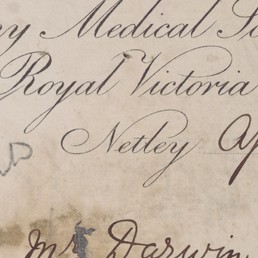 ny Medical S
Royal Victoria
Netley Ap
Mr Darwin